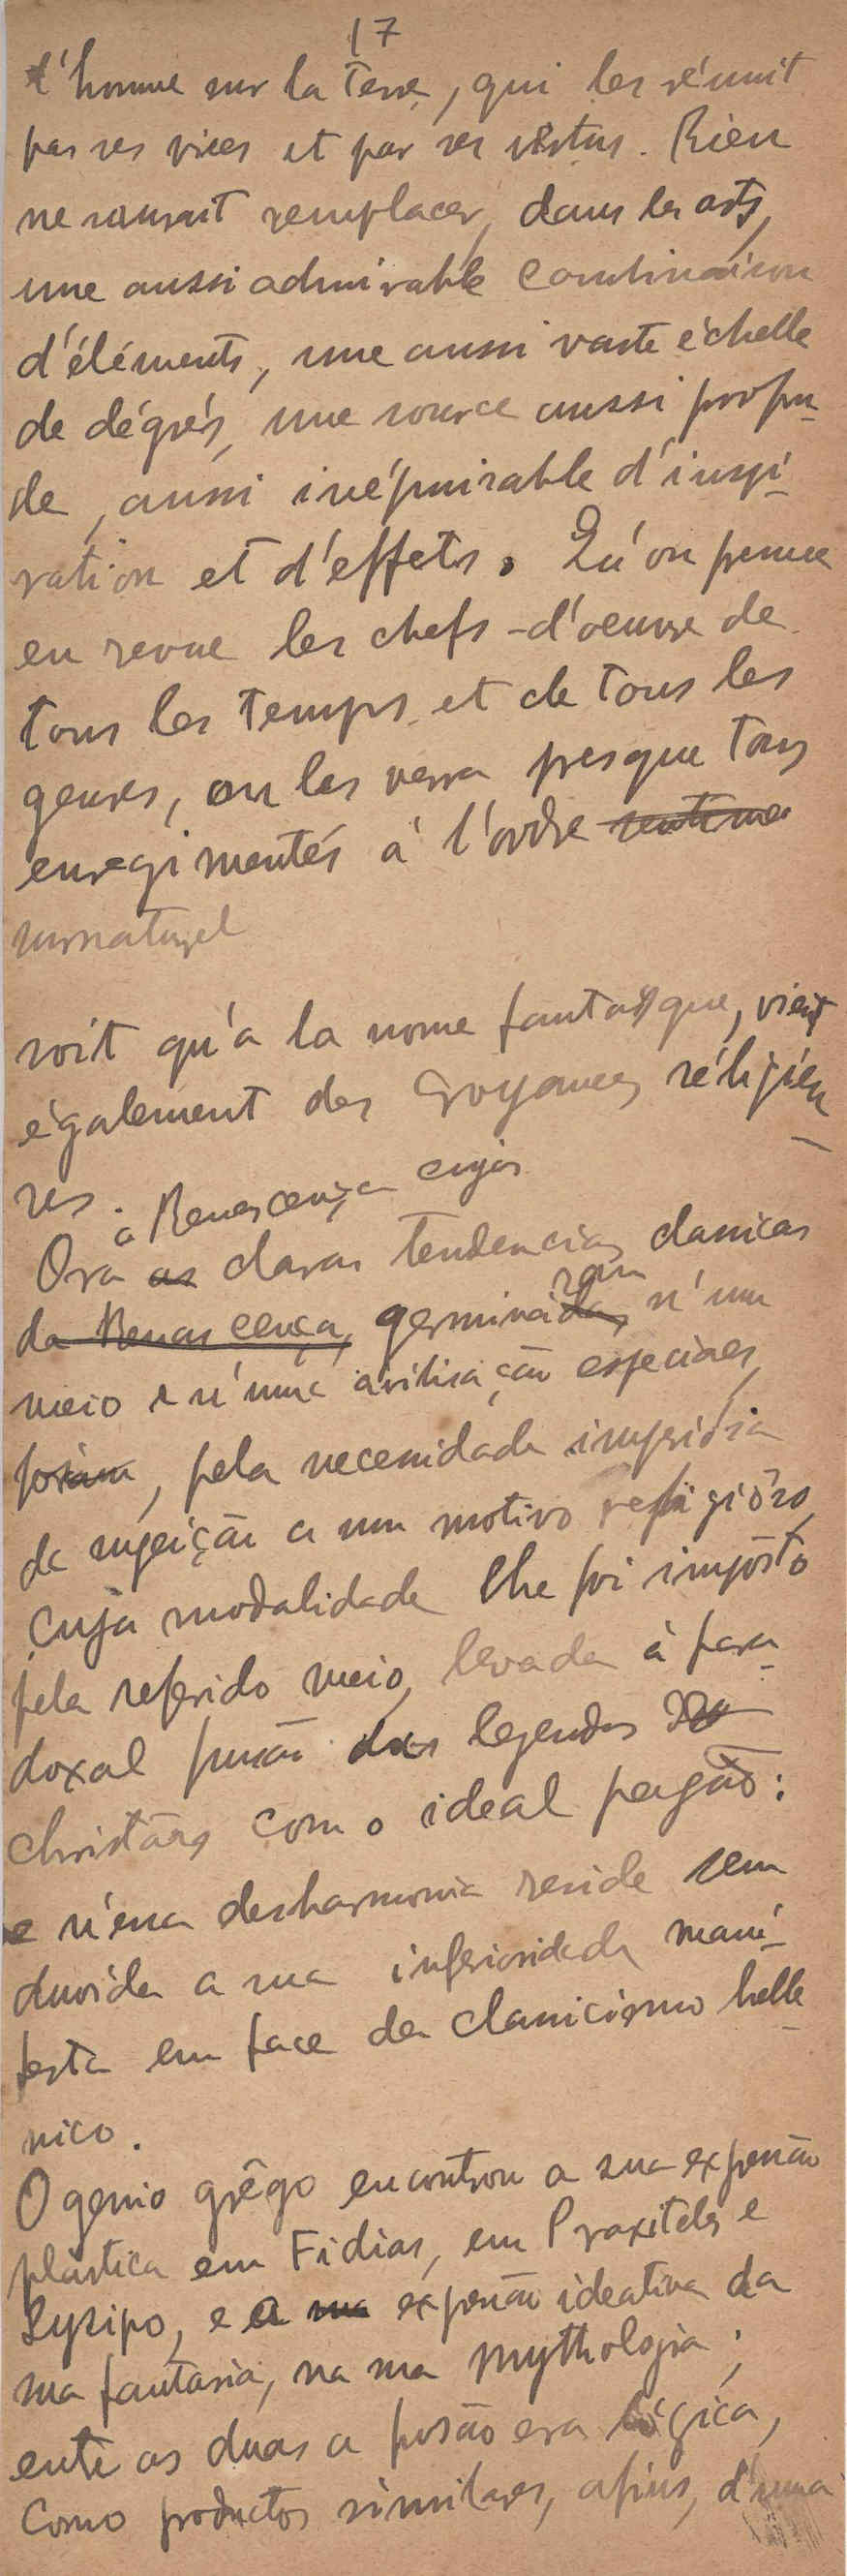 17
l'homme sur la Terre, qui les réunit
par ses vices et par ses vertus. Rien
ne saurait remplacer, dans les arts,
une aussi admirable combinaison
d'éléments, une aussi vaste échelle
de dégrés, une source aussi profon-
de, aussi inépuisable d'inspi-
ration et d'effets. Qu'on passe
en revue les chefs-d'oeuvre de
tous les temps et de tous les
genres, on les verra presque tous
enregimentés à l'ordre
surnaturel
soit qu'a la nome fantasque, vient
également des croyances réligieu-
ses.
a Renascença cujas
Ora as claras tendencias classicas
da Renascença, germinadas ram n'um
meio e n'uma civilisação especiaes,
foram, pela necessidade imperiosa
de sujeição a um motivo religiôso,
cuja modalidade lhe foi impôsto
pela referido meio, levada à para-
doxal fusão das legendas
christãs com o ideal pagão:
e n'essa desharmonia reside sem
duvida a sua inferioridade mani-
festa em face do classicismo helle-
nico.
O genio grêgo encontrou a sua expressão
plastica em Fidias, em Praxiteles e
Lysipo, e a sua expressão ideativa da
sua fantasia, na sua mythologia;
entre as duas a fusão era lógica,
como productos similares, afins, d'uma